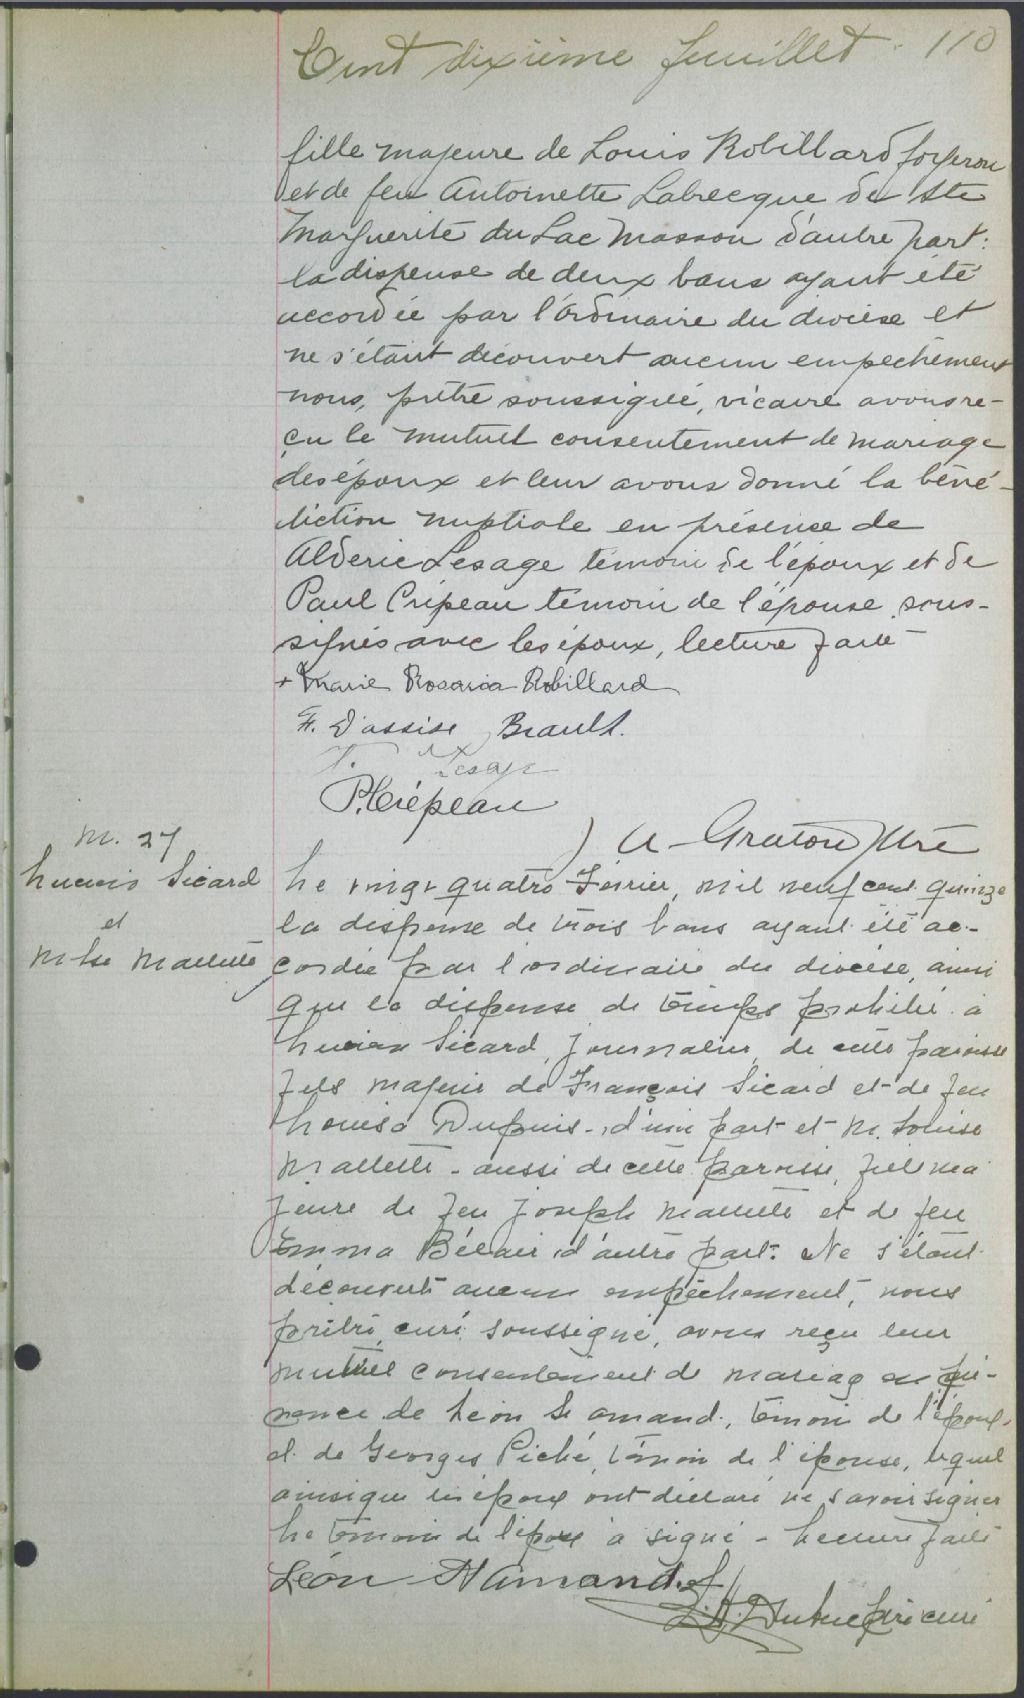 Cent dixième feuillet 110
fille majeure de Louis Robillard forgeron
et de feu Antoinette Labrecque de Ste
Marguerite du Lac Masson d'autre part:
la dispense de deux bans ayant été
accordée par l'Ordinaire du diocèse et
ne s'étant découvert aucun empêchement
nous, prêtre soussigné, vicaire avons re-
çu le mutuel consentement de mariage
des époux et leur avons donné la béné-
diction nuptiale en présence de
Alderic Lesage témoin de l'époux et de
Paul Crépeau témoin de l'épouse, sous-
signés avec les époux, lecture faite
+ Marie Rosaria Robillard
F. D'assise Brault.
Lesage
P. Crépeau
A Graton ptre
M. 27
Lucien Sicard
et
M Lse Mallette
Le vingt quatre Février, mil neuf cent quinze
la dispense de trois bans ayant été ac-
cordée par l'ordinaire du diocèse, ainsi
que la dispense de temps prohibé à
Lucien Sicard, journalier, de cette paroisse
fils majeur de François Sicard et de feu
Louisa Dupuis, d'une part et M. Louise
Mallette - aussi de cette paroisse, fille ma
jeure de feu Joseph Mallette et de feu
Emma Bélair d'autre part. Ne s'étant
découvert aucun empêchement, nous
prêtre, curé soussigné, avons reçu leur
mutuel consentement de mariage en pré-
sence de Léon St amand, témoin de l'époux,
et de Georges Piché, témoin de l'épouse, lequel
ainsi que les époux ont déclaré ne savoir signer
Le témoin de l'époux a signé - Lecture faite
Léon St Amand
ptre curé